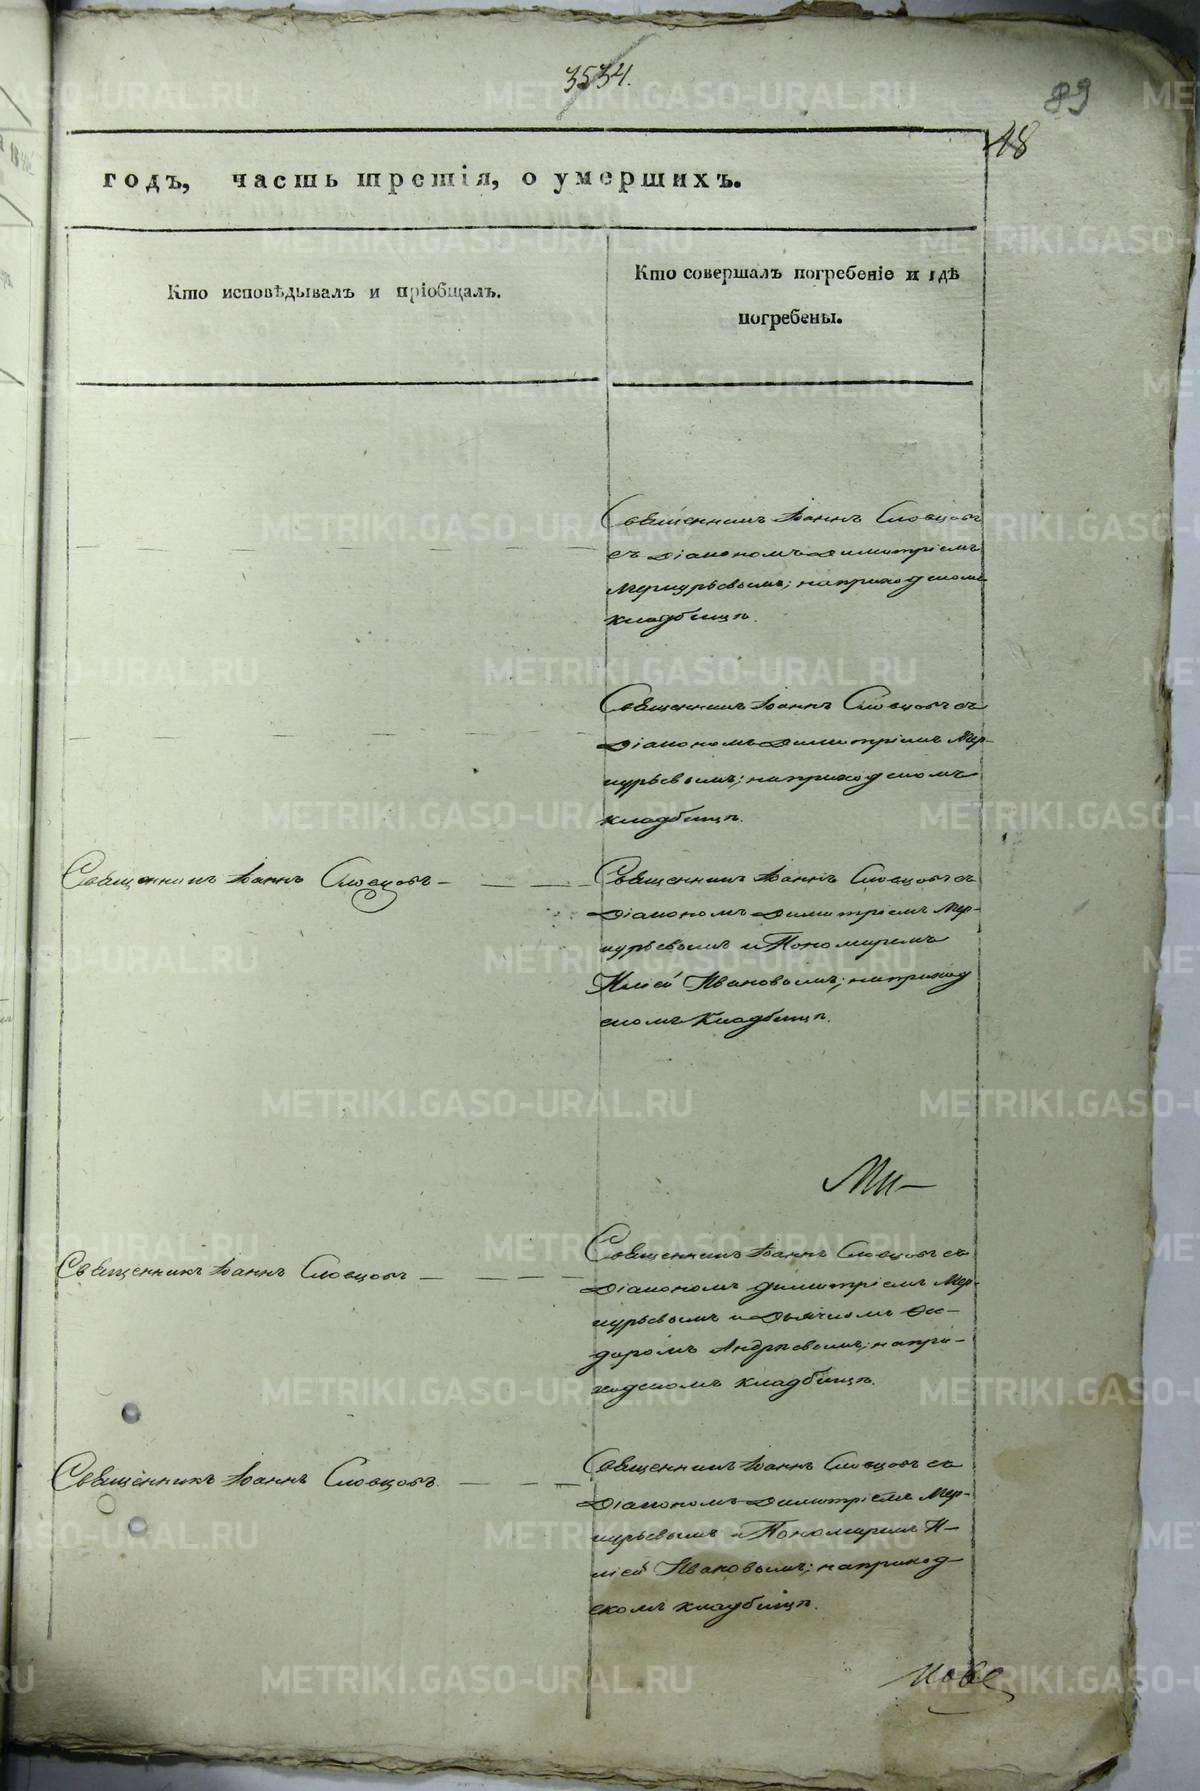 3534.
89
48
годъ, часть третія, о умершихъ.
Кто исповѣдывалъ и пріобщалъ.
Кто совершалъ погребеніе и гдѣ
погребены.
Священникъ Іоаннъ Словцовъ
съ Діакономъ Димитріемъ
Меркурьевымъ; на приходскомъ
кладбищѣ.
Священникъ Іоаннъ Словцовъ съ
Діакономъ Димитріемъ Мер-
курьевымъ; на приходскомъ
кладбищѣ.
Священникъ Іоаннъ Словцовъ
Священникъ Іоаннъ Словцовъ съ
Діакономъ Димитріемъ Мер-
курьевымъ и Пономаремъ
Иліей Ивановымъ; на приход
скомъ кладбищѣ.
Священникъ Іоаннъ Словцовъ
Священникъ Іоаннъ Словцовъ съ
Діакономъ Димитріемъ Мер-
курьевымъ и Дьячкомъ Си-
доромъ Андреевымъ; на при-
ходскомъ кладбищѣ.
Священникъ Іоаннъ Словцовъ.
Священникъ Іоаннъ Словцовъ съ
Діакономъ Димитріемъ Мер-
курьевымъ и Пономаремъ И-
ліей Ивановымъ; на приход-
скомъ кладбищѣ.
METRIKI.GASO-URAL.RU